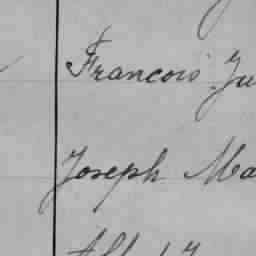 Francois Ju
Joseph Ma